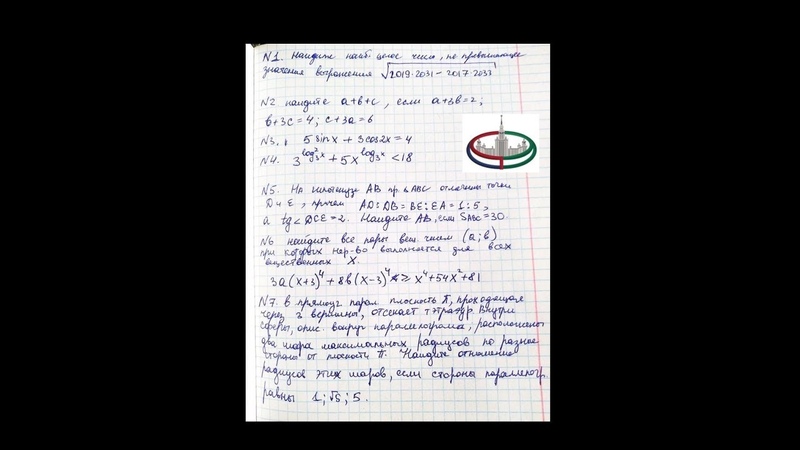 N1. Найдите наиб. целое число, не превышающее
значения выражения √2019·2031 - 2017·2033
N2 найдите a+b+c, если a+3b=2;
b+3c=4; c+3a=6
N3. 5 sinx + 3cos2x = 4
N4. 3^log²₃x + 5x^log₃x < 18
N5. На гипотенузе AB пр. △ABC отмечены точки
D и E, причем AD:DB = BE:EA = 1:5,
а tg∠DCE=2. Найдите AB, если SABC=30.
N6 найдите все пары вещ. чисел (a;b)
при которых нер-во выполняется для всех
вещественных X.
3a(x+3)⁴ + 8b(x-3)⁴ ≥ x⁴+54x²+81
N7. В прямоуг парал. плоскость П, проходящая
через 3 вершины, отсекает тэтраэдр. Внутри
сферы, опис. вокруг параллелограмма, расположены
два шара максимальных радиусов по разные
стороны от плоскости П. Найдите отношение
радиусов этих шаров, если стороны параллелогр.
равны 1; √5; 5.